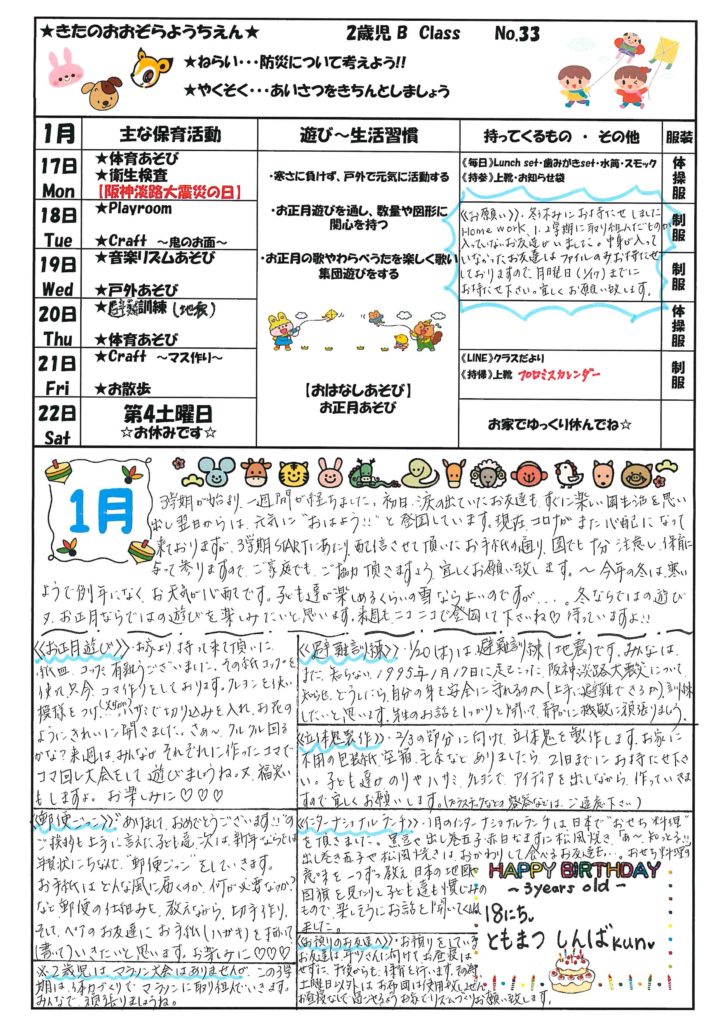 ★きたのおおぞらようちえん★ 2歳児 B Class No.33
★ねらい・・・防災について考えよう!!
★やくそく・・・あいさつをきちんとしましょう
1月 主な保育活動 遊び〜生活習慣 持ってくるもの ・ その他 服装
17日 Mon
★体育あそび
★衛生検査
【阪神淡路大震災の日】
18日 Tue
★Playroom
★Craft 〜鬼のお面〜
19日 Wed
★音楽リズムあそび
★戸外あそび
20日 Thu
★避難訓練(地震)
★体育あそび
21日 Fri
★Craft 〜マス作り〜
★お散歩
22日 Sat
第4土曜日
☆お休みです☆
・寒さに負けず、戸外で元気に活動する
・お正月遊びを通し、数量や図形に
関心を持つ
・お正月の歌やわらべうたを楽しく歌い
集団遊びをする
【おはなしあそび】
お正月あそび
《毎日》Lunch set・歯みがきset・水筒・スモック
《持参》上靴・お知らせ袋
《お願い》冬休みにお持たせしました
Home work、1、2学期に取り組んだものが
入っていないお友達がいました。中身が入って
いなかったお友達はファイルのみお持たせ
しておりますので、月曜日(1/17)までに
お持たせ下さい。宜しくお願い致します。
《LINE》クラスだより
《持帰》上靴 プロミスカレンダー
お家でゆっくり休んでね☆
体操服
制服
制服
体操服
制服
1月
3学期が始まり、一週間が経ちました。初日、涙の出ていたお友達も、すぐに楽しい園生活を思い
出し翌日からは、元気に"おはよう!!"と登園しています。現在、コロナがまた心配になって
来ておりますが、3学期STARTにあたり、配信させて頂いたお手紙の通り、園でも十分注意し、保育に
与って参りますので、ご家庭でも、ご協力頂きますよう、宜しくお願い致します。〜今年の冬は、寒い
ようで例年になく、お天気が心配です。子ども達が楽しめるくらいの雪ならよいのですが・・・。冬ならではの遊び
又、お正月ならではの遊びを楽しみたいと思います。来週もニコニコで登園して下さいね♡待っていますよ!!
《お正月遊び》お家より持って来て頂いた、
紙皿、コック有難うございました。その紙コックを
使って只今、コマ作りをしております。クレヨンを使い
模様をつけ、ハサミで切り込みを入れ、お花の
ようにきれいに開きました。さぁ〜、クルクル回る
かな?来週は、みんながそれぞれに作ったコマで
コマ回し大会をして遊びましょうね。又、福笑い
もしますよ。お楽しみに♡♡♡
《避難訓練》・1/20(木)は、避難訓練(地震)です。みんなは、
まだ、知らない1995年1月17日に起こった、阪神淡路大震災について
知らせ、どうしたら、自分の身を安全に守れるのか(上手に避難できるか)、訓練
したいと思います。先生のお話をしっかりと聞いて、静かに機敏に頑張りましょう。
《立体鬼製作》・2/3の節分に向けて、立体鬼を製作します。お家に
不用の包装紙、空箱、毛糸などありましたら、21日までにお持たせ下さ
い。子ども達がのりやハサミ、クレヨンで、アイディアを出しながら、作っていきま
すので宜しくお願いします。(プラスチックなどの容器などは、ご遠慮下さい)
《郵便ごっこ》"あけましておめでとうございます!!"の
ご挨拶も上手に言えた子ども達、次は、新年ならではの
年賀状にちなんで、"郵便ごっこ"をしていきます。
お手紙はどんな風に届くのか、何が必要なのか?
など郵便の仕組みを教えながら、切手作り、
そして、ペアのお友達にお手紙(ハガキ)を描いて
(書いて)いきたいと思います。お楽しみに♡♡♡
※2歳児はマラソン大会はありませんが、この3学
期は、体力づくりでマラソンに取り組んでいきます。
みんなで頑張りましょうね。
《インターナショナルランチ》・1月のインターナショナルランチは、日本で"おせち料理"
を頂きました。黒豆や出し巻玉子、赤白なますに松風焼き、「あ〜知っとる!!」
出し巻き玉子や松風焼きは、おかわりして食べるお友達も・・・。おせち料理の
意味を一つずつ教え、日本の地図や
国旗を見たりと子ども達も慣れたもので、楽しそうにお話を聞いてくれました。
《お預りのお友達へ》・お預りをしている
お友達は、年少さんに向けてお昼寝は
せずに、午後からも保育を行います。
土曜日以外は、お布団は使用致しません。
お昼寝なしで過ごせるようお家でもリズムづくりお願い致します。
HAPPY BIRTHDAY
〜3years old〜
18にち
ともまつ しんばkun♥